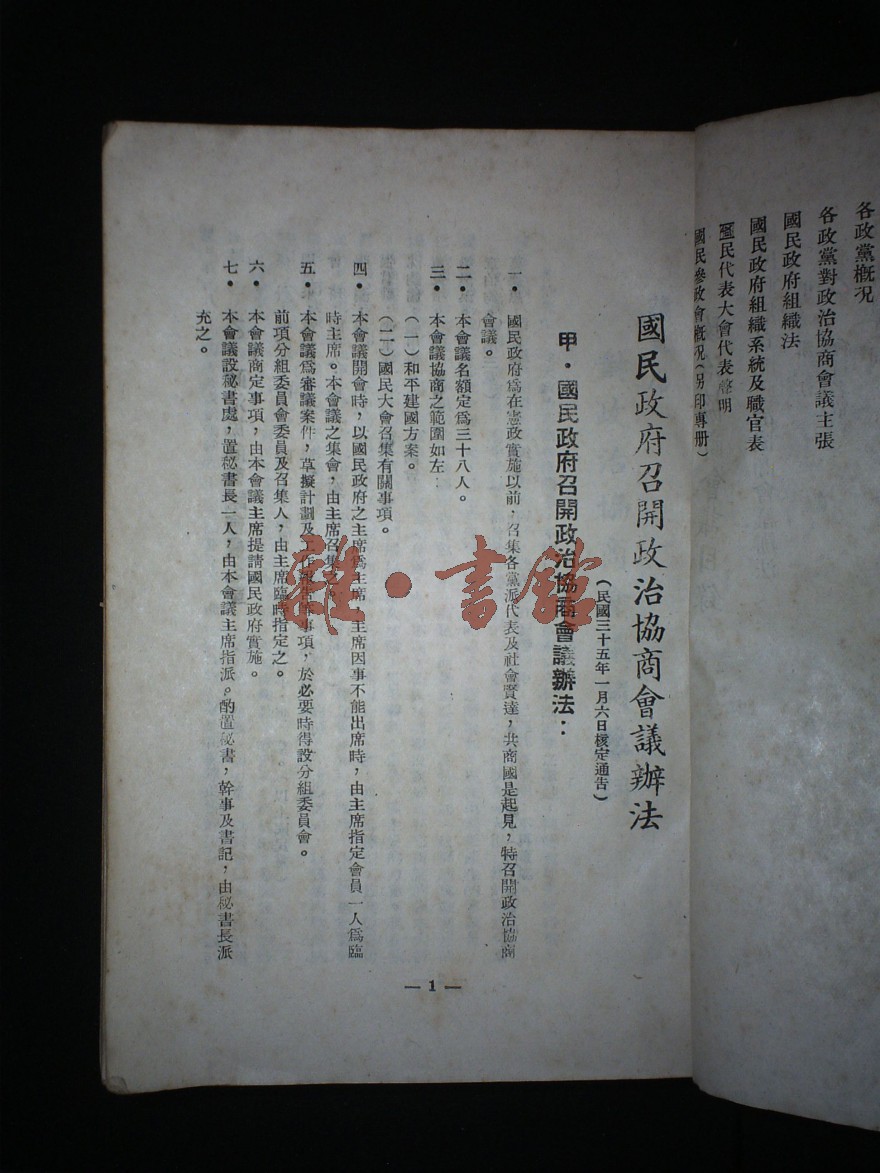 各政黨概况
各政黨對政治協商會議主張
國民政府組織法
國民政府組織系統及職官表
國民代表大會代表聲明
國民參政會概況(另印專册)
國民政府召開政治協商會議辦法
(民國三十五年一月六日核定通告)
甲·國民政府召開政治協商會議辦法:
一·國民政府爲在憲政實施以前,召集各黨派代表及社會賢達,共商國是起見,特召開政治協商
會議。
二·本會議名額定爲三十八人。
三·本會議協商之範圍如左:
(一)和平建國方案。
(二)國民大會召集有關事項。
四·本會議開會時,以國民政府之主席爲主席,主席因事不能出席時,由主席指定會員一人爲臨
時主席。本會議之集會,由主席召集之。
五·本會議爲審議案件,草擬計劃及工作報告等事項,於必要時得設分組委員會。
前項分組委員會委員及召集人,由主席臨時指定之。
六·本會議商定事項,由本會議主席提請國民政府實施。
七·本會議設秘書處,置秘書長一人,由本會議主席指派。酌置秘書,幹事及書記,由秘書長派
充之。
— 1 —
雜·書館